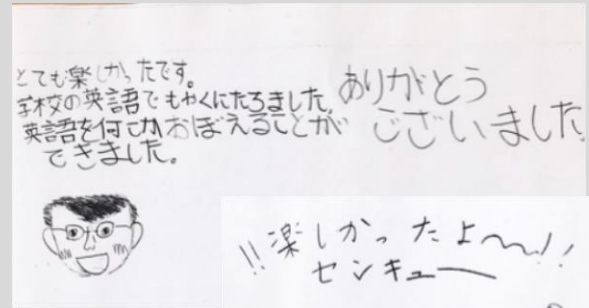 とても楽しかったです。
学校の英語でもやくにたちました。
英語を何こかおぼえることが
できました。
ありがとう
ございました
!!楽しかったよ〜〜!!
センキュー